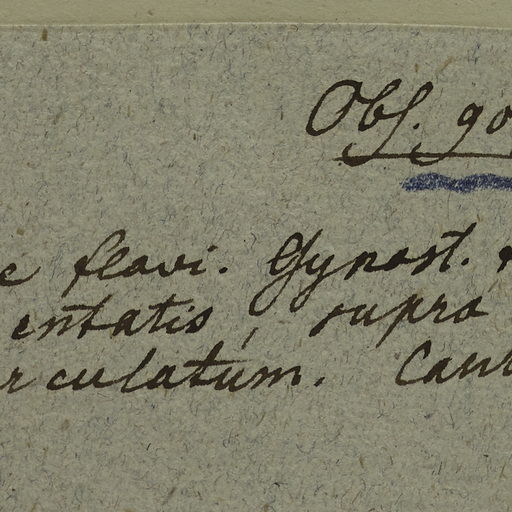 Obs. go
e flavi. Gynost.
entatis, supra
rculatum. Cau